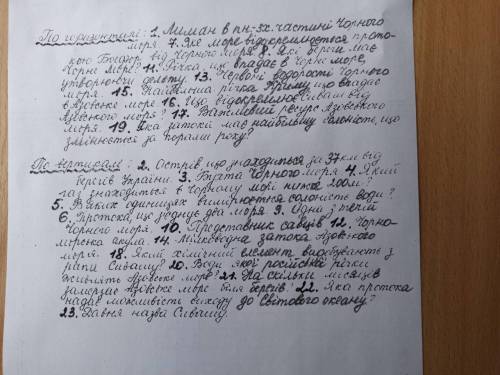 По горизонталі: 1. Лиман в пн-зх. частині Чорного
моря. 7. Яке море відокремлюється прото-
кою Босфор від Чорного моря 8. Які береги має
Чорне море? 11. Річка, що впадає в Чорне море,
утворюючи дельту. 13. Червоні водорості Чорного
моря. 15. Найбільша річка Криму, що впадає
в Азовське море 16. Що відокремлює Сиваш від
Азовського моря? 17. Важливий ресурс Азовського
моря. 19. Яка затока має найбільшу солоність, що
змінюється за порами року?
По вертикалі: 2. Острів що знаходиться за 37 км від
берегів України. 3. Бухта Чорного моря 4. Який
газ знаходиться в Чорному морі нижче 200м?
5. В яких одиницях вимірюється солоність води?
6. Протока, що з'єднує два моря 9. Одна з течій
Чорного моря. 10. Представник савців 12. Чорно-
морська акула. 14. Мілководна затока Азовського
моря. 18. Який хімічний елемент видобувають з
рапи Сивашу? 20. Води якої російської річки
живлять Азовське море? 21. На скільки місяців
замерзає Азовське море біля берегів? 22. Яка протока
надає можливість виходу до Світового океану?
23. Давня назва Сивашу.